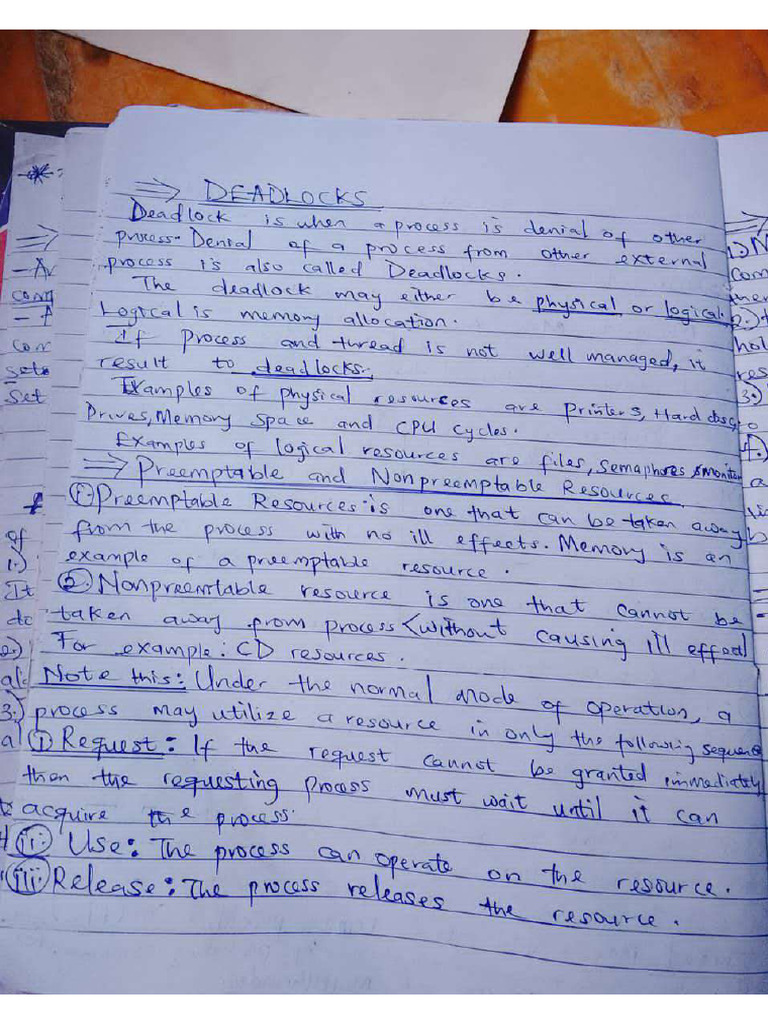 ⇒ DEADLOCKS
Deadlock is when a process is denial of other
process. Denial of a process from other external
process is also called Deadlocks.
The deadlock may either be physical or logical.
Logical is memory allocation.
If process and thread is not well managed, it
result to deadlocks.
Examples of physical resources are printers, Hard disc,
Drives, Memory Space and CPU Cycles.
Examples of logical resources are files, Semaphores, monitor
⇒ Preemptable and Nonpreemptable Resources
Preemptable Resources: is one that can be taken away
from the process with no ill effects. Memory is an
example of a preemptable resource.
② Nonpreemtable resource is one that cannot be
taken away from process (without causing ill effect
For example: CD resources.
Note this: Under the normal mode of operation, a
process may utilize a resource in only the following sequence
(i) Request: If the request cannot be granted immediately
then the requesting process must wait until it can
acquire the process.
(ii) Use: The process can operate on the resource.
(iii) Release: The process releases the resource.